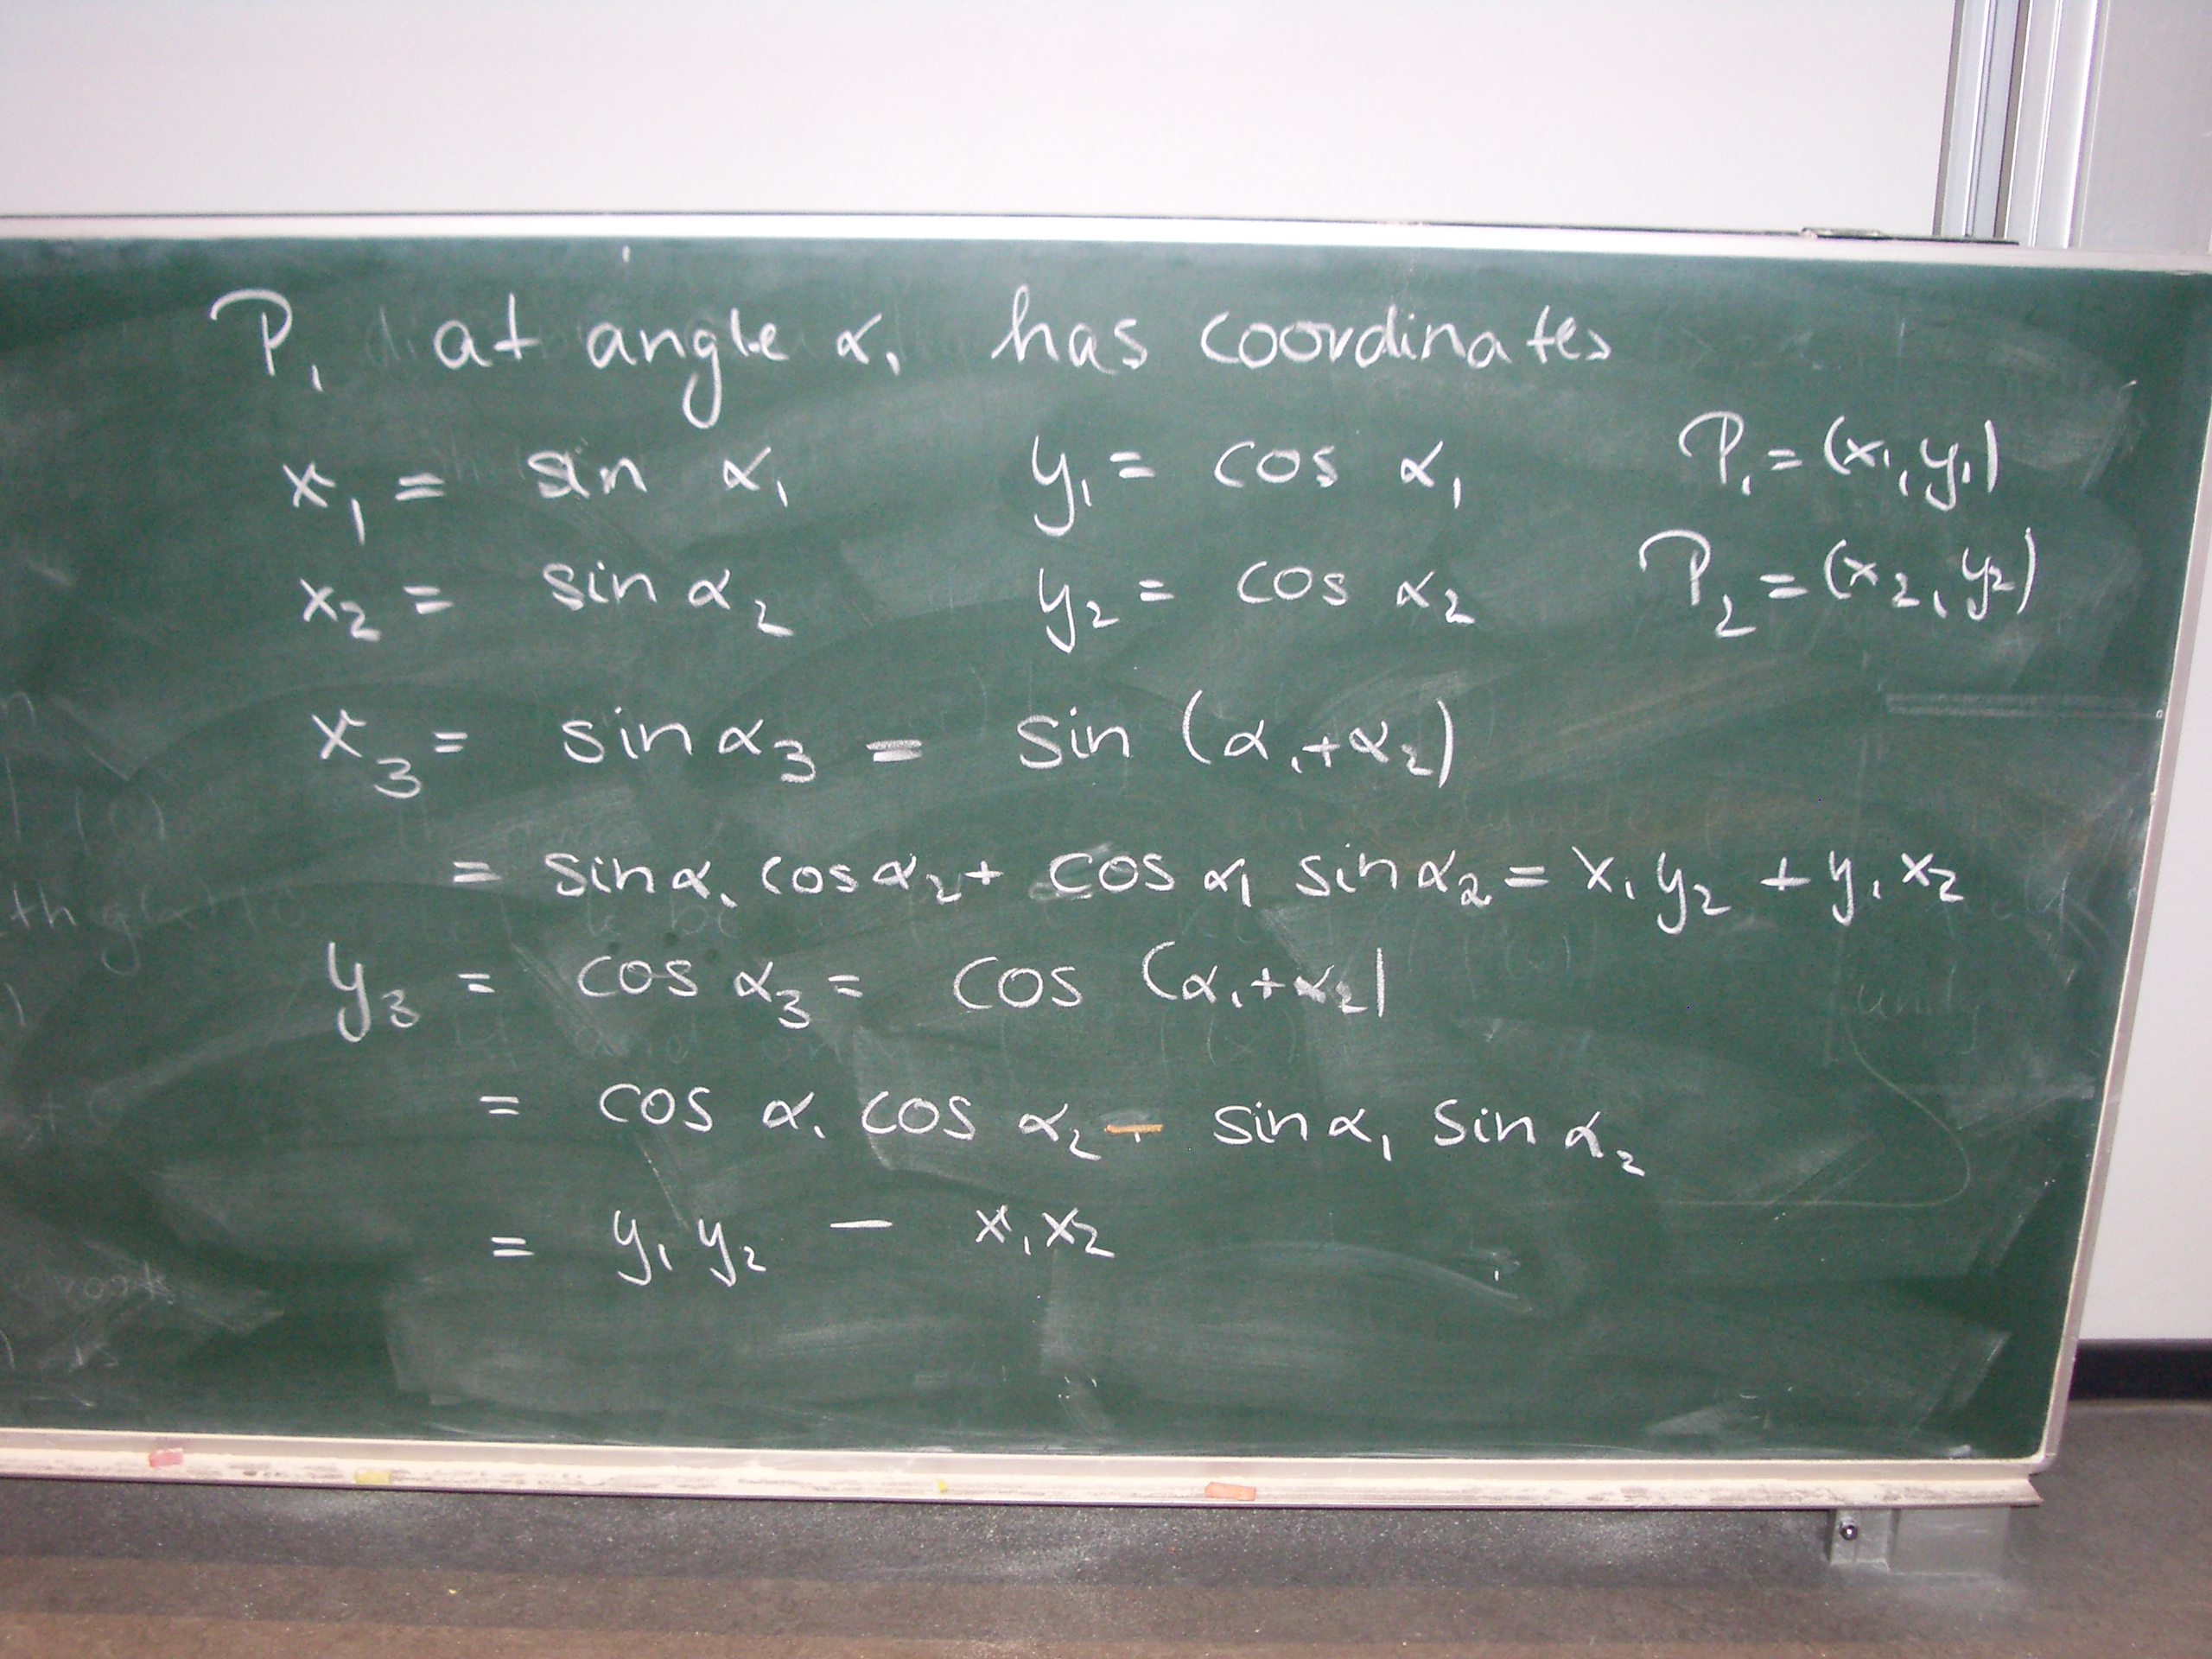 P₁ at angle α₁ has coordinates
x₁ = sin α₁ y₁ = cos α₁ P₁ = (x₁, y₁)
x₂ = sin α₂ y₂ = cos α₂ P₂ = (x₂, y₂)
x₃ = sin α₃ = sin (α₁+α₂)
= sin α₁ cos α₂ + cos α₁ sin α₂ = x₁ y₂ + y₁ x₂
y₃ = cos α₃ = cos (α₁+α₂)
= cos α₁ cos α₂ - sin α₁ sin α₂
= y₁ y₂ - x₁ x₂